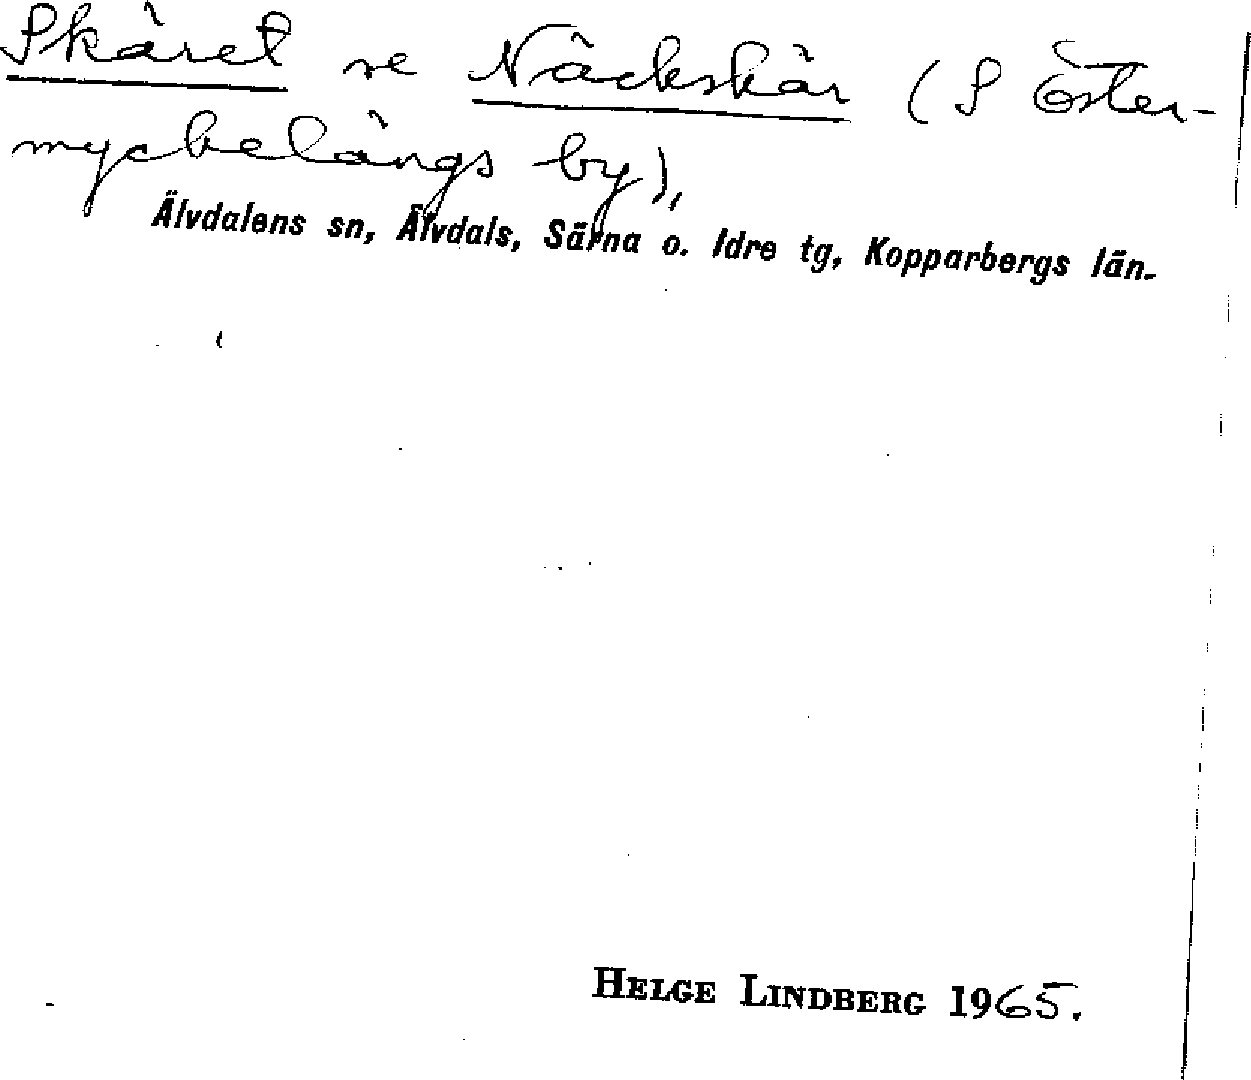 Skäret se Näckskär (S Öster-
myckelängs by),
Älvdalens sn, Älvdals, Särna o. Idre tg, Kopparbergs län.
HELGE LINDBERG 1965.